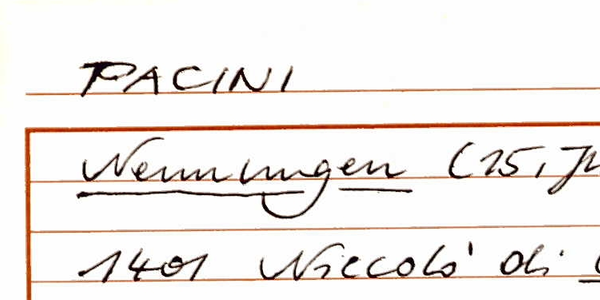 PACINI
Nennungen (15. Jh
1401 Niccolò di